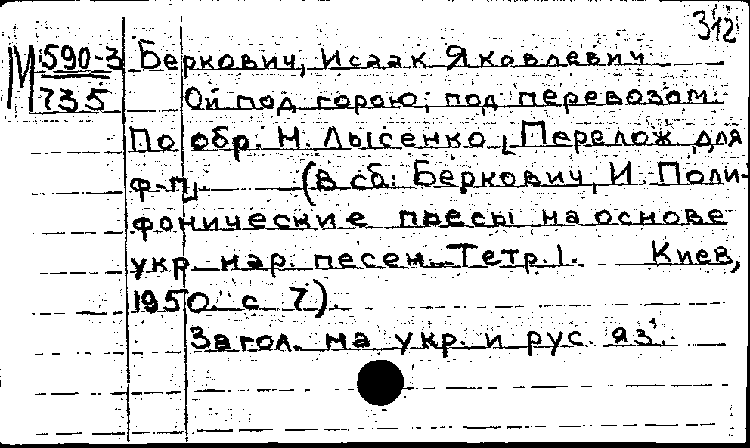 312
М 590-3 Беркович, Исаак Яковлевич
735 Ой под горою, под перевозом.
По обр. Н. Лысенко [Перелож для
ф-п]. (В сб: Беркович, И. Поли-
фонические пьесы на основе
укр. нар. песен. Тетр. 1. Киев,
1950. с 7).
Загол. на укр. и рус. яз.